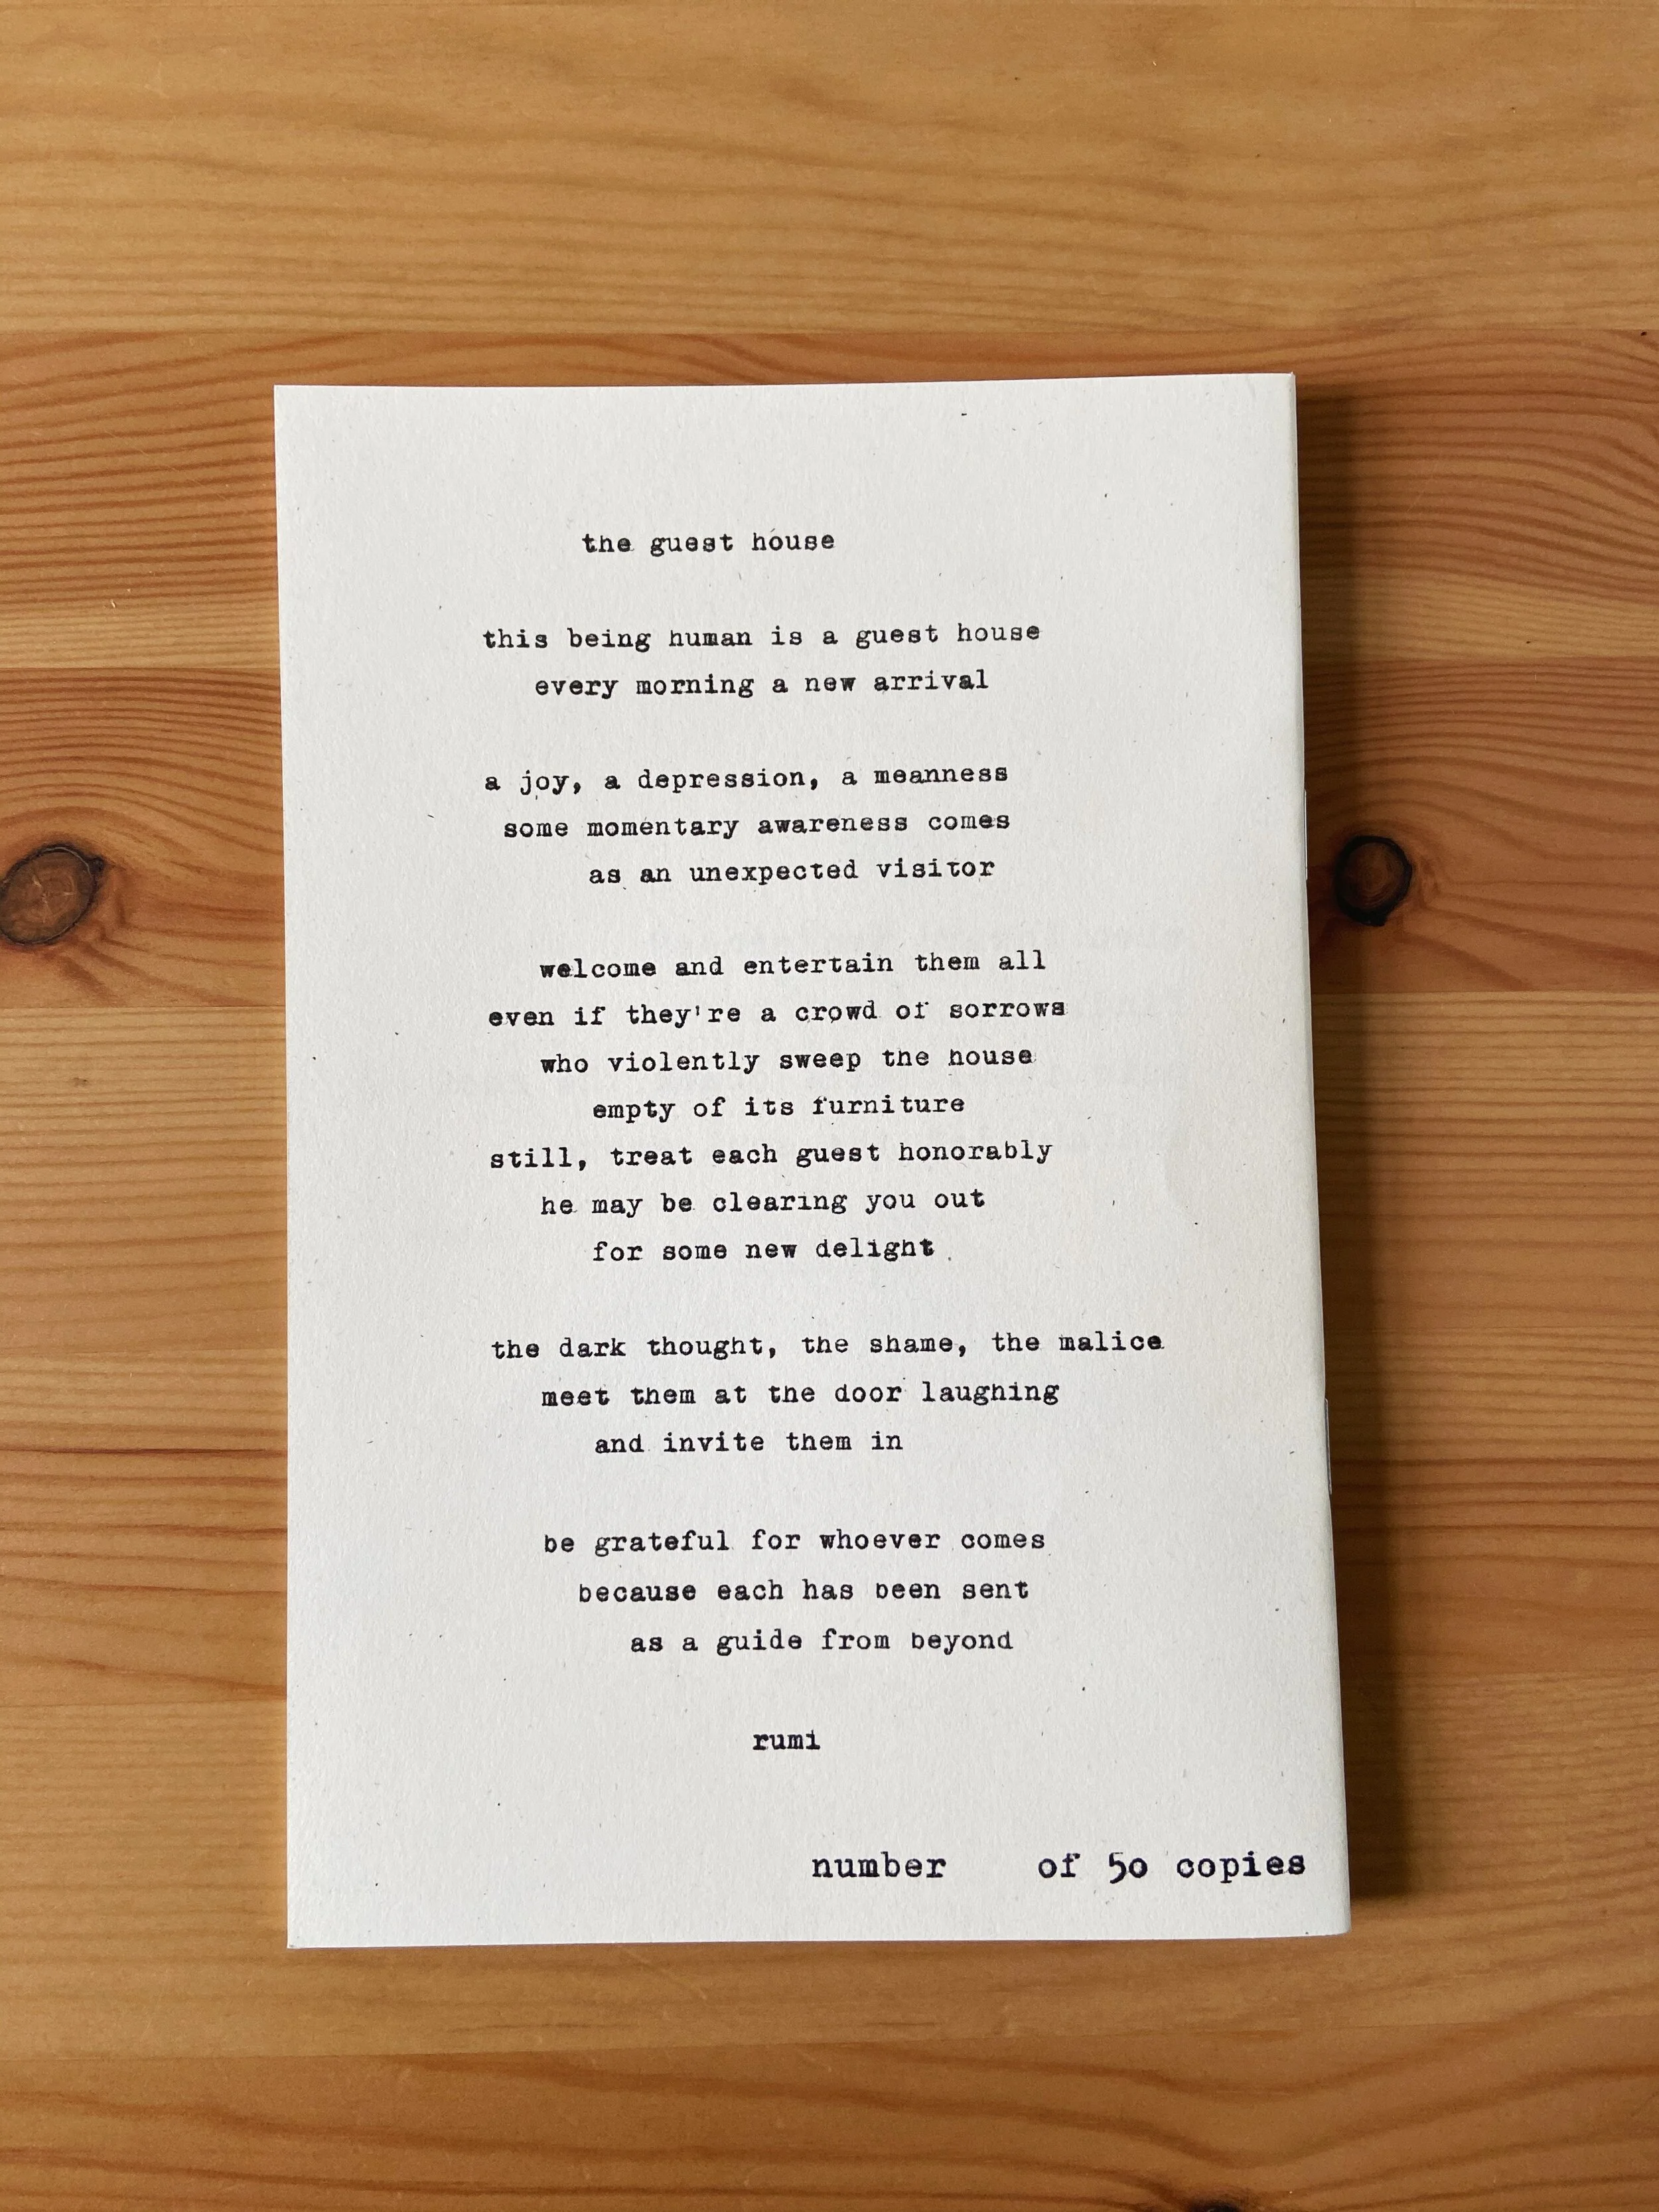 the guest house
this being human is a guest house
every morning a new arrival
a joy, a depression, a meanness
some momentary awareness comes
as an unexpected visitor
welcome and entertain them all
even if they're a crowd of sorrows
who violently sweep the house
empty of its furniture
still, treat each guest honorably
he may be clearing you out
for some new delight
the dark thought, the shame, the malice
meet them at the door laughing
and invite them in
be grateful for whoever comes
because each has been sent
as a guide from beyond
rumi
number of 50 copies